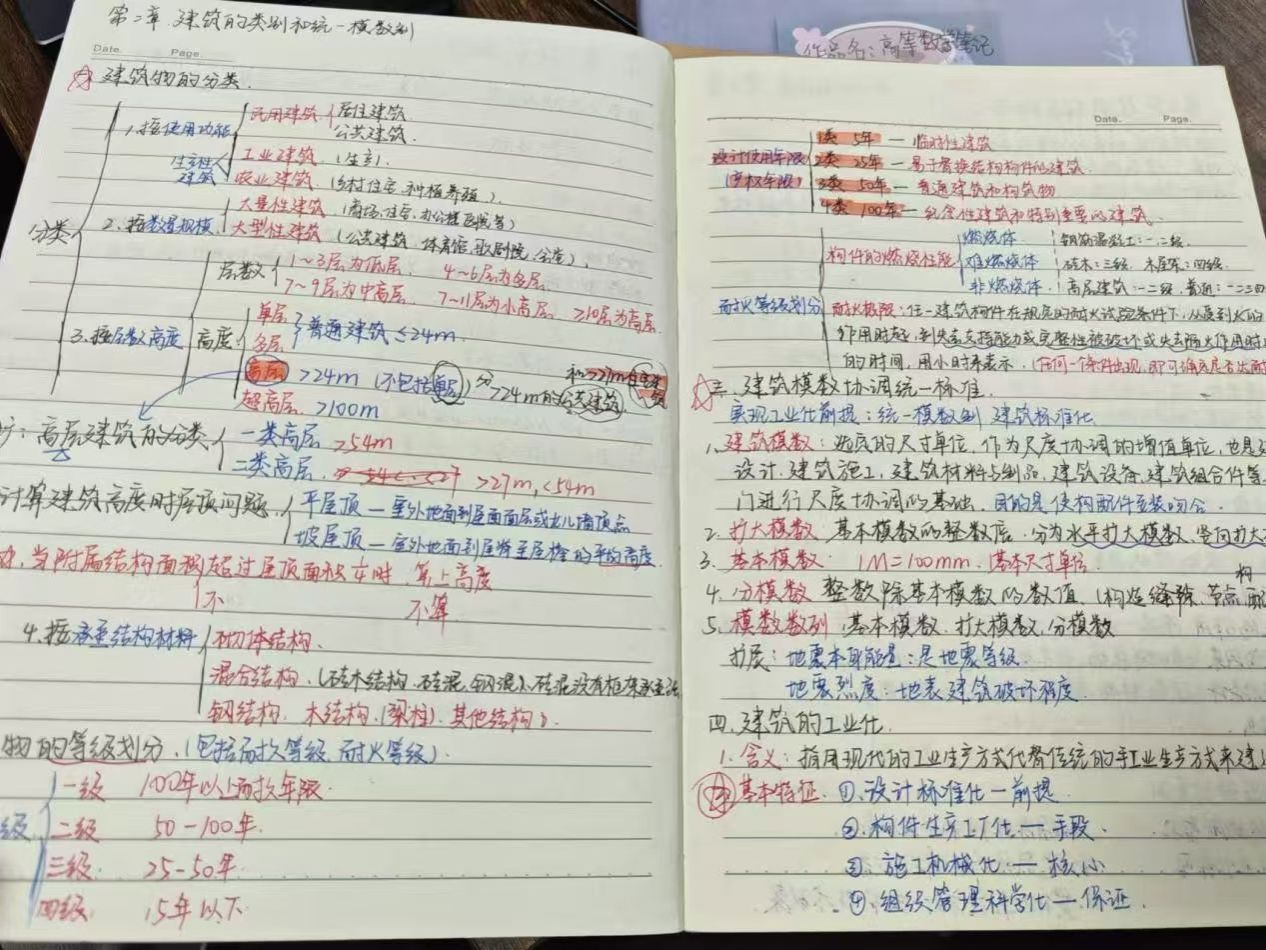 第二章 建筑的类别和统一模数制
Date. Page.
建筑物的分类.
分类
1.按使用功能
民用建筑 居住建筑
公共建筑.
生产性建筑
工业建筑 (生产)
农业建筑 (乡村住宅,种植养殖).
2.按数量规模
大量性建筑 (商场,住宅,办公楼,医院等)
大型性建筑 (公共建筑、体育馆,歌剧院,
3.按层数高度
层数 1~3层为低层. 4~6层为多层.
7~9层为中高层. 7~11层为小高层. ≥10层为高层.
高度
单层
多层 普通建筑≤24m.
高层 >24m (不包括单层) 分 和>27m住宅建筑
>24m的公共建筑
超高层. >100m
高层建筑的分类
一类高层 >54m
二类高层. >27m,<54m
计算建筑高度时屋顶问题.
平屋顶 — 室外地面到屋面面层或女儿墙顶点
坡屋顶 — 室外地面到屋脊至屋檐的平均高度.
当附属结构面积超过屋顶面积¼时 算上高度
不 不算
4.按承重结构材料
砌体结构.
混合结构.(砖木结构,砖混,钢混).砖混没有框架承重
钢结构. 木结构.(梁柱). 其他结构).
物的等级划分.(包括耐久等级.耐火等级).
级
一级 100年以上耐久年限.
二级 50-100年.
三级. 25-50年.
四级. 15年以下
作品名:高等数学笔记
Date. Page.
设计使用年限
(产权年限)
1类 5年 — 临时性建筑
2类 25年 — 易于替换结构构件的建筑.
3类 50年 — 普通建筑和构筑物
4类 100年 — 纪念性建筑和特别重要的建筑.
耐火等级划分
构件的燃烧性能
燃烧体. 钢筋混凝土:一.二级.
难燃烧体 砖木:三级. 木屋架:四级.
非燃烧体. 高层建筑:一二级.普通:一二三四
耐火极限:任一建筑构件在规定的耐火试验条件下,从受到火的
作用时起,到失去支持能力或完整性被破坏或失去隔火作用时
的时间,用小时来表示.(任何一个条件出现,即可确定是否达到
三.建筑模数协调统一标准.
实现工业化前提:统一模数制 建筑标准化.
1.建筑模数:选定的尺寸单位,作为尺度协调的增值单位,也是建
设计.建筑施工,建筑材料与制品,建筑设备,建筑组合件等
门进行尺度协调的基础. 目的是使构配件安装吻合.
2.扩大模数 基本模数的整数倍.分为水平扩大模数,竖向扩大
3.基本模数. 1M=100mm.(基本尺寸单位.
构
4.分模数 整数除基本模数的数值.(构造缝隙.节点.
5.模数数列.基本模数.扩大模数.分模数
扩展:地震本身能量:是地震等级.
地震烈度:地表建筑破坏程度.
四.建筑的工业化.
1.含义:指用现代的工业生产方式代替传统的手工业生产方式来建
基本特征.①.设计标准化 — 前提
②.构件生产工厂化 — 手段.
③.施工机械化 — 核心
④.组织管理科学化 — 保证.